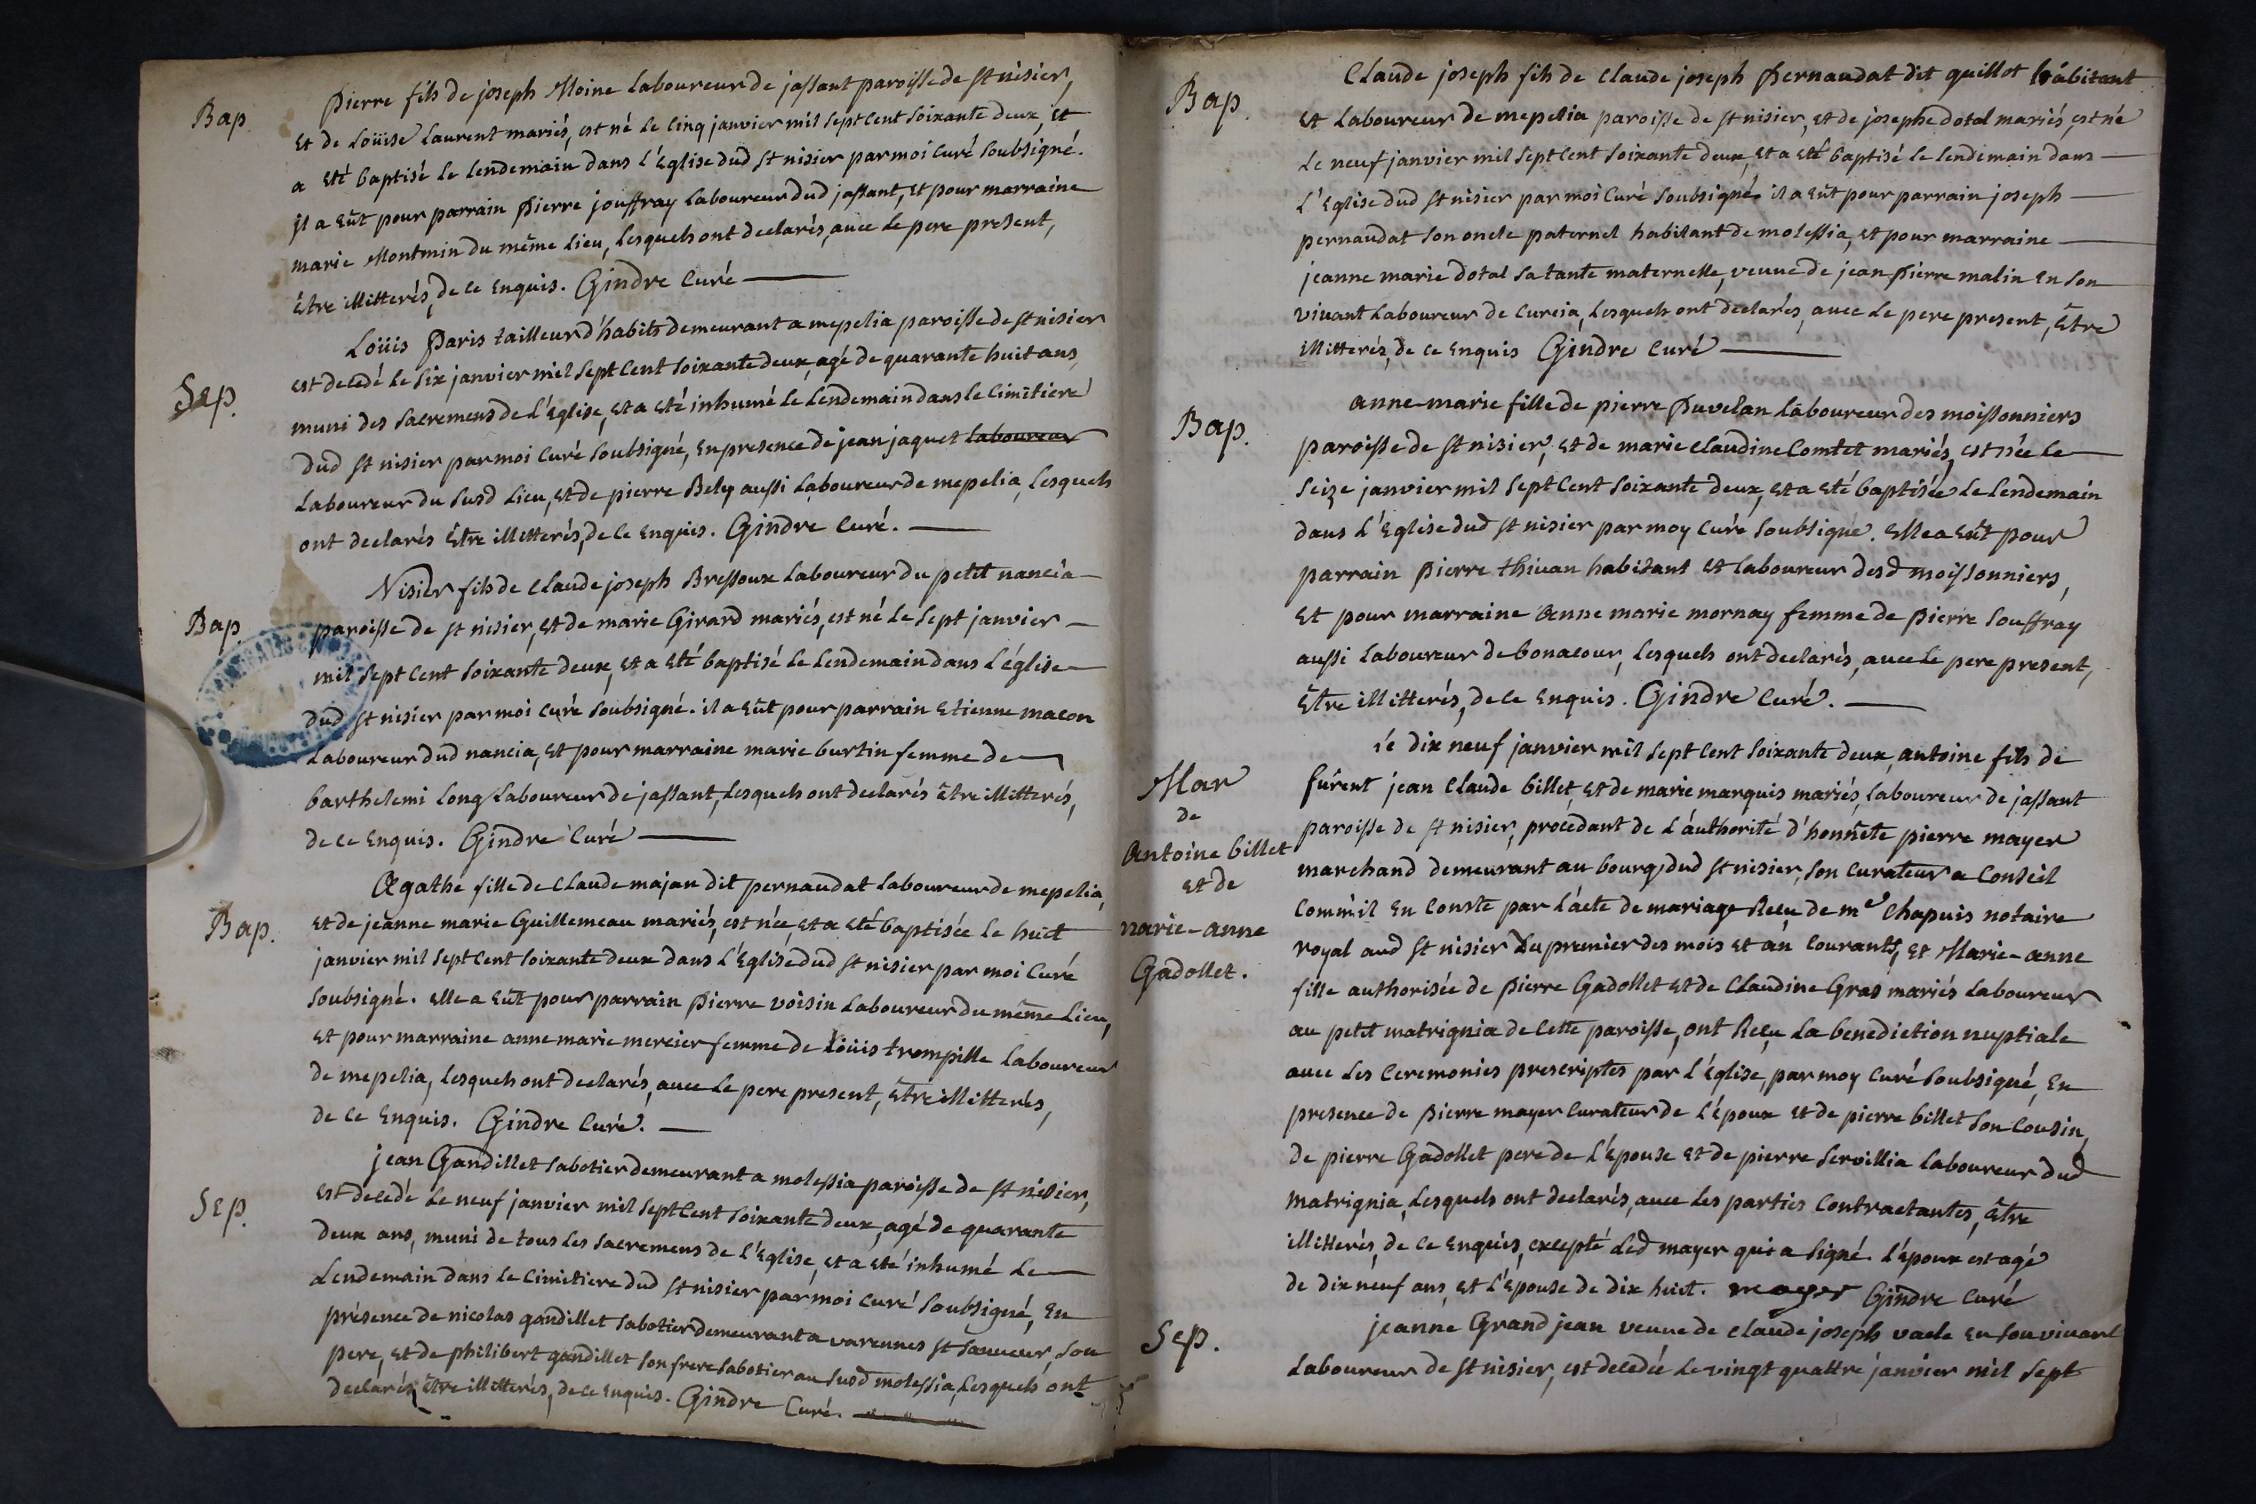 Bap.
Pierre fils de joseph Moine Laboureur de jassant paroisse de St nisier,
Et de Loüise Laurent mariés, est né le cinq janvier mil sept cent soixante deux, Et
a Eté baptisé le lendemain dans l'Eglise dud St nisier par moi curé soubsigné.
il a Eût pour parrain pierre jouffray Laboureur dud jassant, Et pour marraine
marie Montmin du même Lieu, Lesquels ont declarés, avec Le pere present,
Etre illitterés, de ce Enquis. Gindre Curé
Sep.
Loüis Paris tailleur d'habits demeurant a mepelia paroisse de St nisier
est decedé le six janvier mil sept cent soixante deux, agé de quarante huit ans,
muni des sacremens de l'Eglise, Et a Eté inhumé le Lendemain dans le Cimitiere
dud St nisier par moi Curé soubsigné, En presence de jean jaquet laboureur
Laboureur du susd Lieu, Et de pierre Bely aussi Laboureur de mepelia, Lesquels
ont declarés Etre illitterés, de ce Enquis. Gindre Curé.
Bap.
Nisier fils de Claude joseph Bressoux Laboureur du petit nancia
paroisse de St nisier, Et de marie Girard mariés, est né Le sept janvier
mil sept Cent soixante deux, Et a Eté baptisé Le Lendemain dans L'église
dud St nisier par moi Curé soubsigné. il a Eût pour parrain Etienne macon
Laboureur dud nancia, Et pour marraine marie burtin femme de
barthelemi Long Laboureur de jassant, Lesquels ont declarés Etre illitterés,
de ce Enquis. Gindre Curé
Bap.
Agathe fille de Claude majan dit pernaudat laboureur de mepelia,
Et de jeanne marie Guillemeau mariés, est née, Et a Eté baptisée le huit
janvier mil sept Cent soixante deux dans L'Eglise dud St nisier par moi Curé
soubsigné. Elle a Eût pour parrain pierre voisin Laboureur du même Lieu,
Et pour marraine anne marie mercier femme de Loüis trompille laboureur
de mepelia, Lesquels ont declarés, avec Le pere present, Etre illitterés,
de ce Enquis. Gindre Curé.
Sep.
jean Gandillet sabotier demeurant a molessia paroisse de St nisier,
est decedé Le neuf janvier mil sept Cent soixante deux, agé de quarante
deux ans, muni de tous Les sacremens de l'Eglise, Et a Eté inhumé Le
Lendemain dans Le Cimitiere dud St nisier par moi Curé soubsigné, En
présence de nicolas gandillet sabotier demeurant a varennes St sauveur, son
pere, Et de philibert gandillet son frere sabotier au susd molessia, Lesquels ont
declarés Etre illitterés, de ce Enquis. Gindre Curé.
Bap.
Claude joseph fils de Claude joseph Pernaudat dit guillot habitant
Et Laboureur de mepelia paroisse de St nisier, Et de josephe dotal mariés, est né
Le neuf janvier mil sept Cent soixante deux, Et a Eté baptisé Le Lendemain dans
L'Eglise dud St nisier par moi Curé soubsigné. il a Eût pour parrain joseph
pernaudat son oncle paternel habitant de molessia, Et pour marraine
jeanne marie dotal sa tante maternelle, veuve de jean pierre malin En son
vivant Laboureur de Curcia, Lesquels ont declarés, avec Le pere present, Etre
illitterés, de ce Enquis Gindre Curé
Bap.
anne-marie fille de pierre Puvelan Laboureur des moissonniers
paroisse de St nisier, Et de marie Claudine Comtet mariés, est née Le
seize janvier mil sept Cent soixante deux, Et a Eté baptisée Le Lendemain
dans L'Eglise dud St nisier par moy Curé soubsigné. Elle a Eût pour
parrain pierre thivan habitant Et laboureur desd moissonniers,
Et pour marraine Anne marie mornay femme de pierre Souffray
aussi Laboureur de bonacour, Lesquels ont declarés, avec Le pere present,
Etre illitterés, de ce Enquis. Gindre Curé.
Mar
de
Antoine billet
Et de
Marie-anne
Gadollet.
Le dix neuf janvier mil sept Cent soixante deux, antoine fils de
fûrent jean Claude billet, Et de marie marquis mariés, Laboureur de jassant
paroisse de St nisier, procedant de L'authorité d'honnête pierre mayer
marchand demeurant au bourg dud St nisier, son Curateur a Conseil
Comm'il En Conste par L'acte de mariage Recu de me Chapuis notaire
royal aud St nisier du premier des mois Et an Courants, Et Marie-anne
fille authorisée de pierre Gadollet Et de Claudine Gras mariés Laboureur
au petit matrignia de Cette paroisse, ont Reçu La benediction nuptiale
avec Les Ceremonies prescriptes par L'Eglise, par moy Curé soubsigné, En
presence de pierre mayer Curateur de L'époux Et de pierre billet son Cousin,
de pierre Gadollet pere de L'épouse Et de pierre servillia Laboureur dud
matrignia, Lesquels ont declarés, avec Les parties Contractantes, Etre
illitterés, de ce Enquis, excepté Led mayer qui a signé. L'époux est agé
de dix neuf ans, Et L'épouse de dix huit. mayer Gindre Curé
Sep.
jeanne Grand jean veuve de Claude joseph vacle En son vivant
Laboureur de St nisier, est decedée Le vingt quattre janvier mil sept